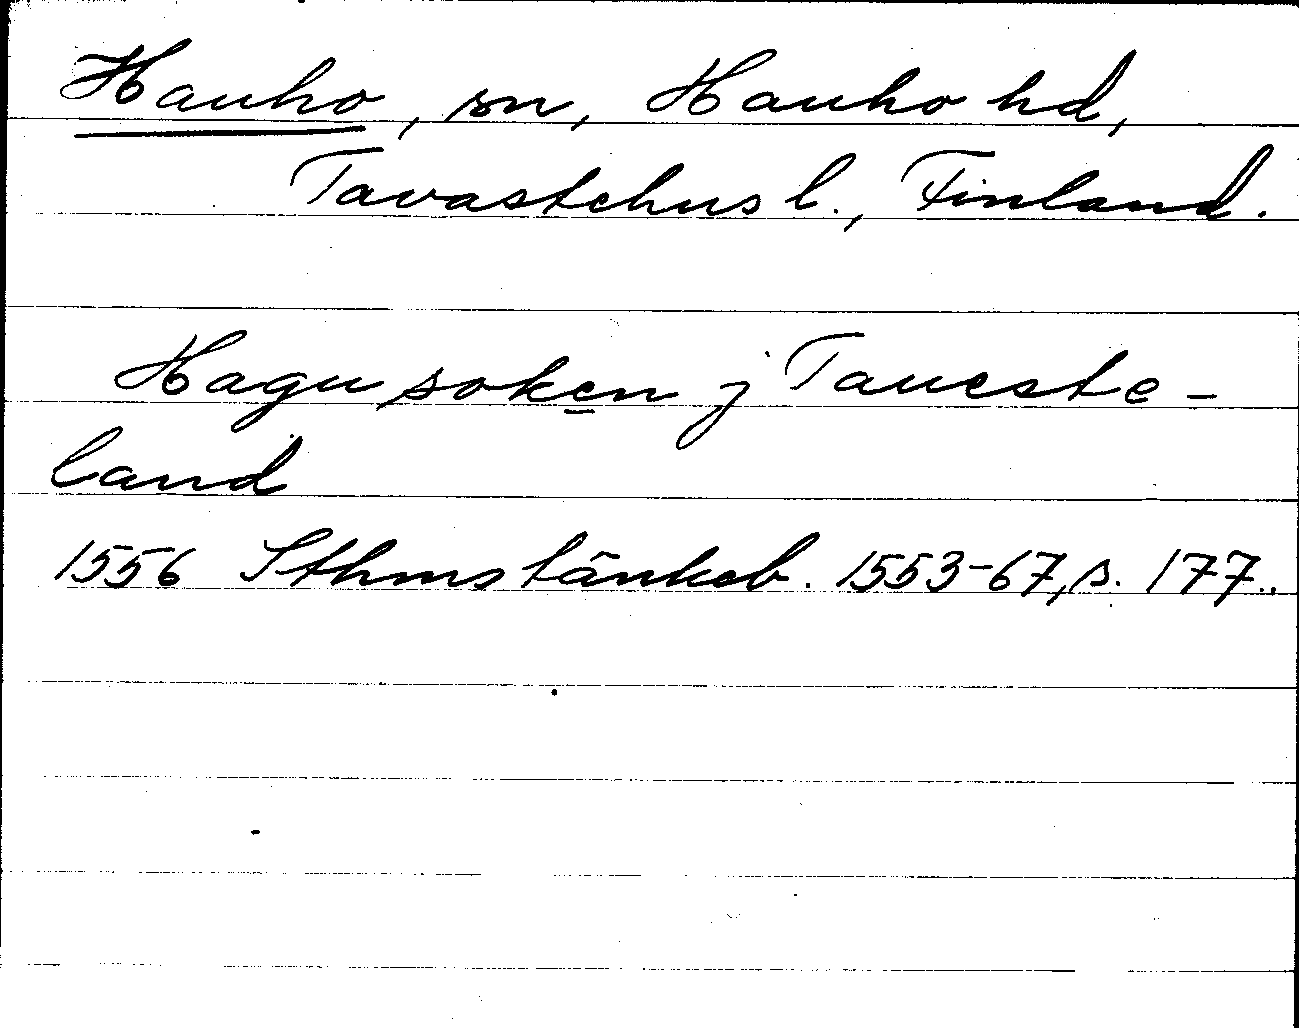 Hauho, sn, Hauho hd,
Tavastehus l., Finland.
Hagu soken j Taueste-
land
1556 Sthms tänkeb. 1553-67, s. 177.